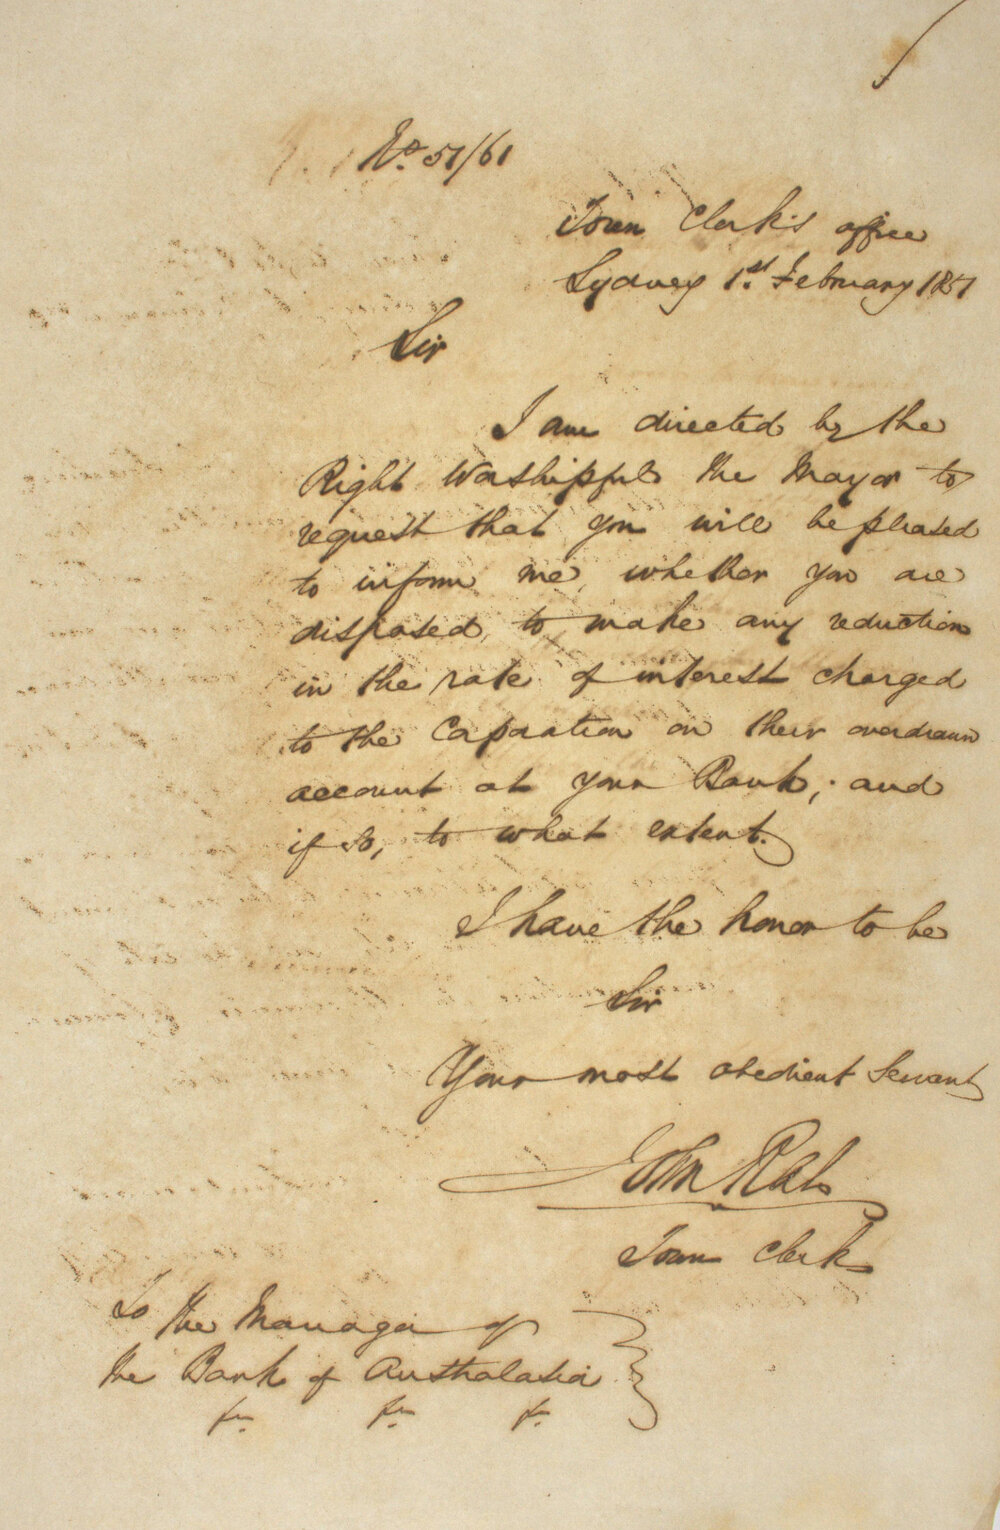 No. 51/61
Town Clerk's office
Sydney 1st. February 1851
Sir
I am directed by the
Right Worshipful the Mayor to
request that you will be pleased
to inform me, whether you are
disposed, to make any reduction
in the rate of interest charged
to the Corporation on their overdrawn
account at your Bank; and
if so, to what extent.
I have the honor to be
Sir
Your most obedient Servant
John Rae
Town Clerk
To the Manager of
the Bank of Australasia